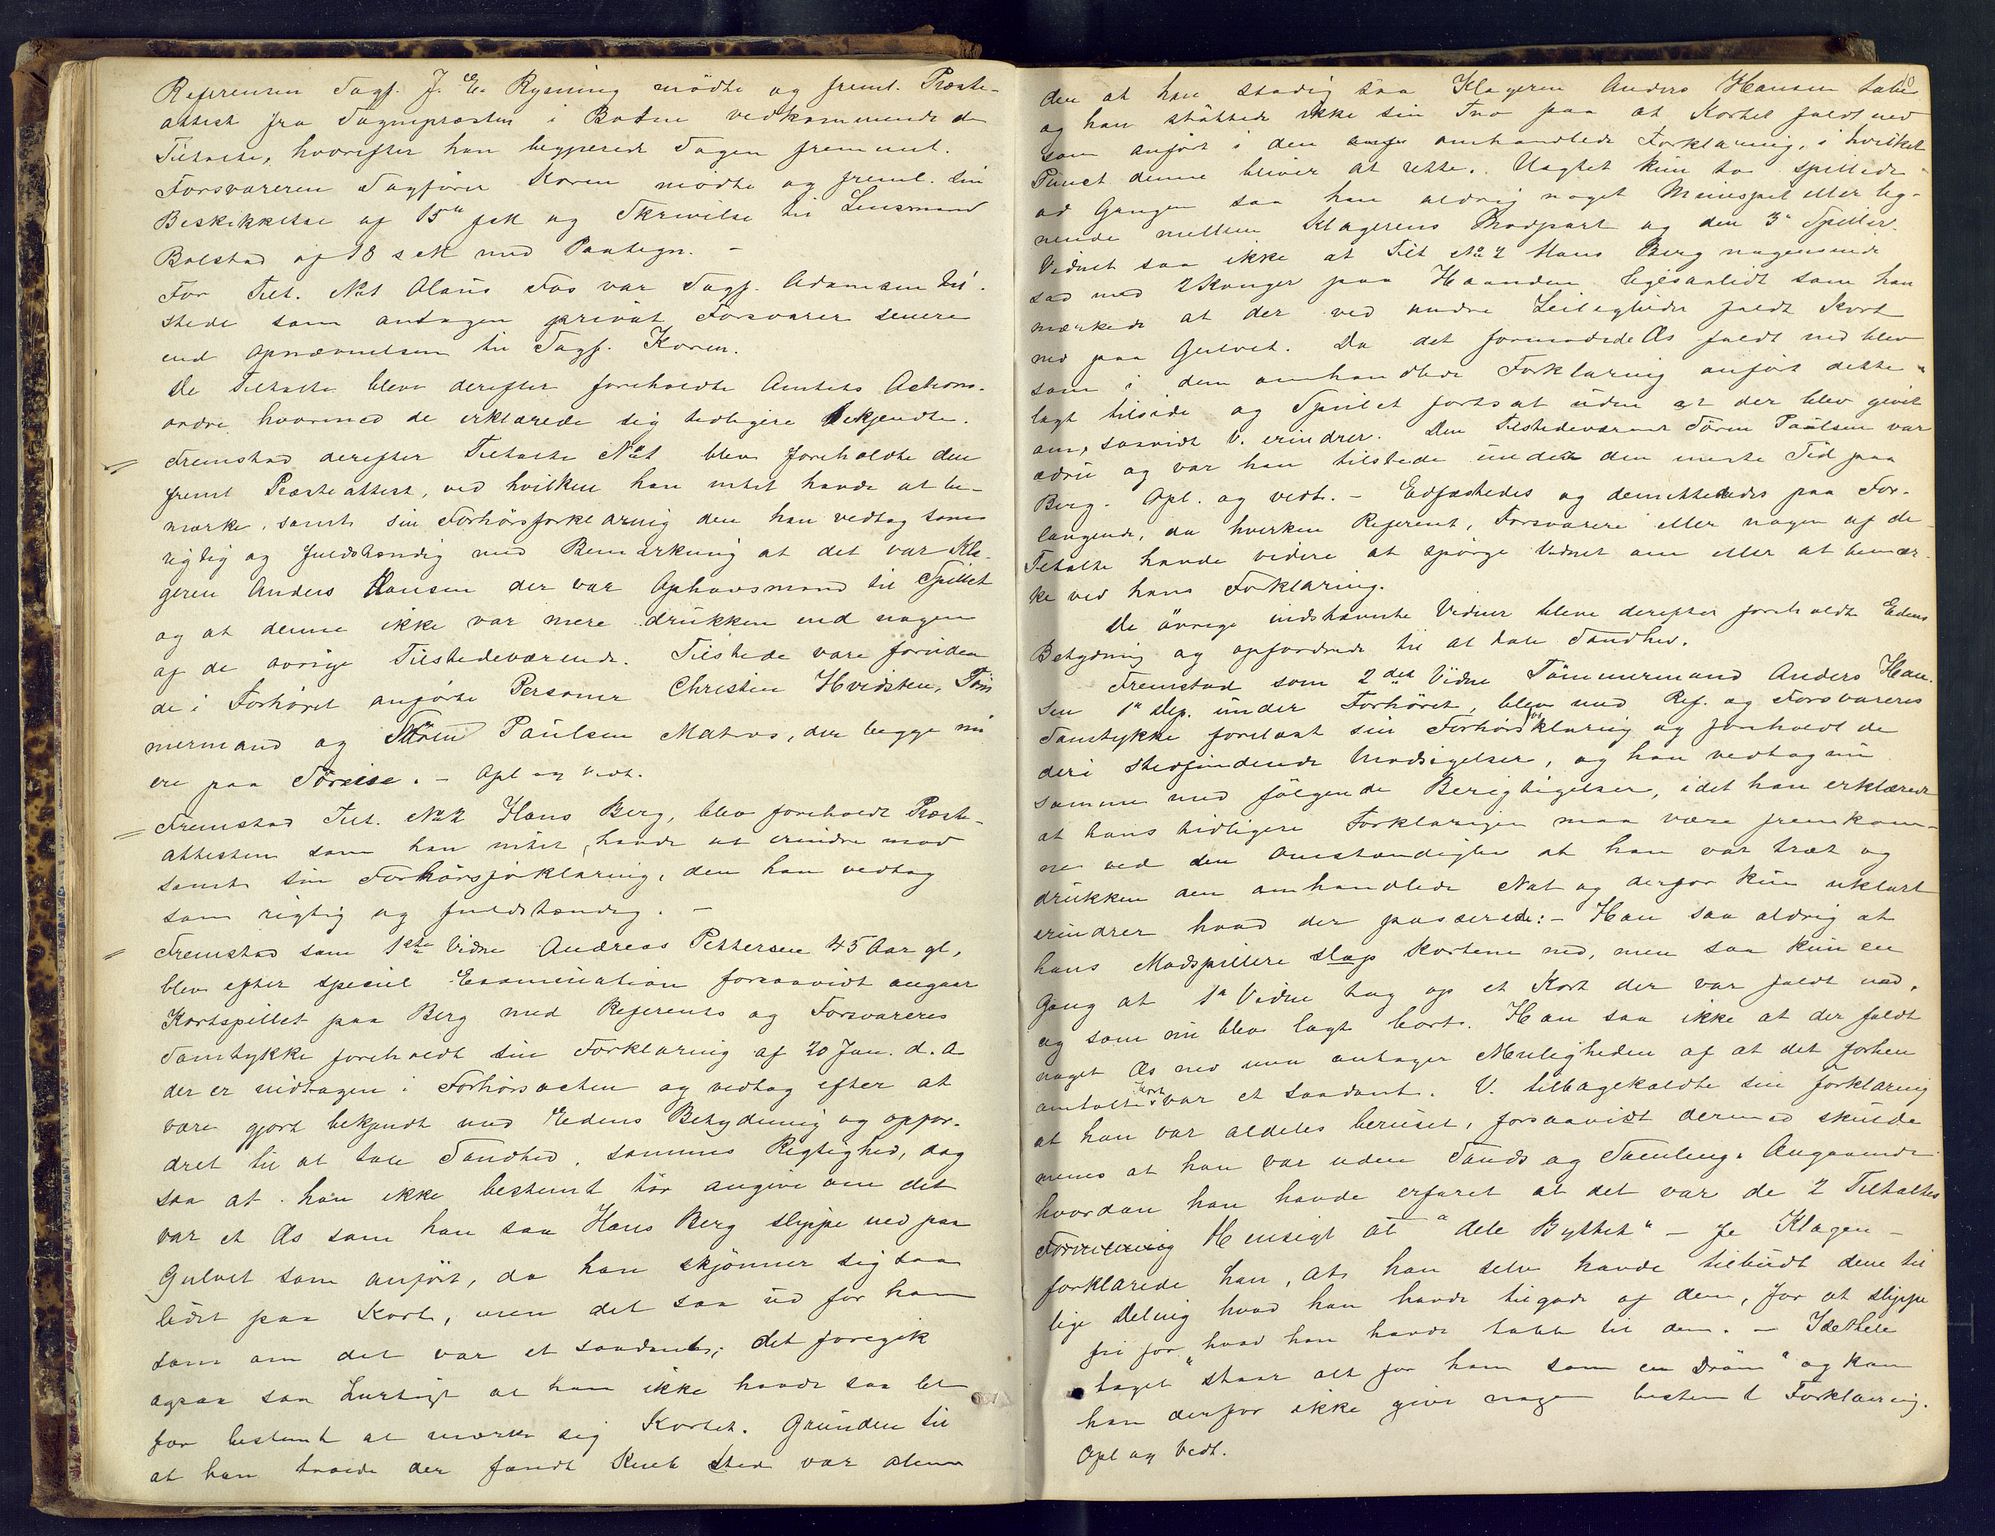 Referenten Sagf. J. E. Rysning mødte og freml. Præste-
attest fra Sognepræsten i Bodin vedkommende de
Tiltalte, hvorefter han begjærede Sagen fremmet.
Forsvareren Sagfører Koren mødte og freml. sin
Beskikkelse af 15de ds og Skrivelse til Lensmand
Bolstad af 18 s M med Paategn. –
For Tilt. No 1 Olaus Fos var Sagf. Adamsen til-
stede som antagen privat Forsvarer senere
end Opnævnelsen til Sagf. Koren.
De Tiltalte bleve derefter foreholdte Amtets Actions-
ordre hvormed de erklærede sig tidligere bekjendte.
Fremstod derefter Tiltalte No 1 blev foreholdte den
freml Præsteattest, ved hvilken han intet havde at be-
mærke, samt sin Forhørsforklaring den han vedtog som
rigtig og fuldstændig med Bemærkning at det var Kla-
geren Anders Hansen der var Ophavsmand til Spillet
og at denne ikke var mere drukken end nogen
af de øvrige Tilstedeværende. Tilstede vare foruden
de i Forhøret anførte Personer Christen Hvidsten, Töm
mermand og Sören Paulsen Matros, der begge nu
ere paa Søreise. – Opl og Vedt.
Fremstod Tilt. No 2 Hans Berg, blev foreholdt Præste-
attesten som han intet havde at erindre mod
samt sin Forhørsforklaring, den han vedtog
som rigtig og fuldstændig. –
Fremstod som 1ste Vidne Andreas Pettersen 45 Aar gl,
blev efter speciel Examination forsaavidt angaar
Kortspillet paa Berg med Referents og Forsvareres
Samtykke foreholdt sin Forklaring af 20 Jan. d. A
der er indtagen i Forhørsacten og vedtog efter at
være gjort bekjendt med Edens Betydning og opfor-
dret til at tale Sandhed, sammes Rigtighed, dog
saa at han ikke bestemt tør angive om det
var et Æs som han saa Hans Berg slippe ned paa
Gulvet som anført, da han skjønner sig saa
lidet paa Kort, men det saa ud for ham
som om det var et saadant; det foregik
ogsaa saa hurtigt at han ikke havde saa let
for bestemt at mærke sig Kortet. Grunden til
at han troede der fandt Kneb Sted var alene
10
den at han stadig saa Klageren Anders Hansen tabe
og han støttede ikke sin Tro paa at Kortet faldt ned
som anført i den omhandlede Forklaring, i hvilket
Punct denne bliver at rette. Uagtet kun to spillede
ad Gangen saa han aldrig noget Minespil eller lig-
nende mellem Klagerens Modpart og den 3die Spiller.
Vidnet saa ikke at Tilt No 2 Hans Berg nogensinde
sad med 2 Konger paa Haanden ligesaalidt som han
mærkede at der ved andre Leiligheder faldt Kort
ned paa Gulvet. Da det formodede Æs faldt ned blev
som i den omhandlede Forklaring anført dette
lagt tilside og Spillet fortsat uden at der blev givet
om, saavidt V. erindrer. Den Tilstedeværende Sören Paulsen var
ædru og var han tilstede under den meste Tid paa
Berg. Opl. og vedt. – Edfæstedes og demitteredes paa For-
langende, da hverken Referent, Forsvarere eller nogen af de
Tiltalte havde videre at spørge Vidnet om eller at bemær-
ke ved hans Forklaring.
De øvrige indstævnte Vidner bleve derefter foreholdt Edens
Betydning og opfordrede til at tale Sandhed.
Fremstod som 2det Vidne Tömmermand Anders Han-
sen 1ste Dep. under Forhöret, blev med Ref. og Forsvareres
Samtykke forelæst sin Forhørsforklaring og foreholdt de
deri stedfindende Modsigelser, og han vedtog nu
samme med følgende Berigtigelser, idet han erklærede
at hans tidligere Forklaringer maa være fremkom-
ne ved den Omstændighed at han var træt og
drukken den omhandlede Nat og derfor kun uklart
erindrer hvad der passerede: – Han saa aldrig at
hans Medspillere slap Kortene ned, men saa kun en
Gang at 1ste Vidne tog op et Kort der var faldt ned,
og som nu blev lagt bort. Han saa ikke at der faldt
noget Æs ned men antager Muligheden af at det forhen
omtalte Kort var et saadant. V. tilbagekaldte sin Forklaring
at han var aldeles beruset, forsaavidt dermed skulde
menes at han var uden Sands og Samling. Angaaende
hvordan han havde erfaret at det var de 2 Tiltaltes
Hensigt at "dele Byttet" – jf Klagen –
forklarede han, at han selv havde tilbudt dem til
lige Deling hvad han havde tilgode af dem, for at slippe
fri for hvad han havde tabt til dem. – Idethele
taget "staar alt for ham som en Dröm" og kan
han derfor ikke give nogen bestemt Forklaring.
Opl og Vedt.